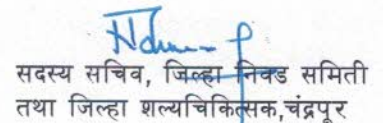 सदस्य सचिव, जिल्हा निवड समिती
तथा जिल्हा शल्यचिकित्सक,चंद्रपूर